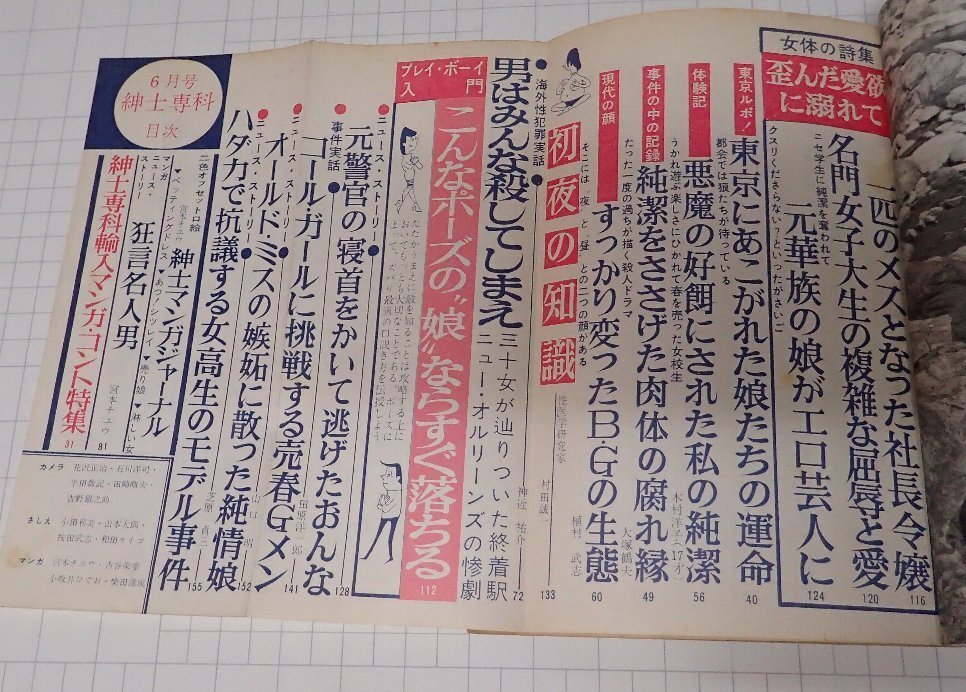 女体の詩集
歪んだ愛欲に溺れて
一匹のメスとなった社長令嬢 116
ニセ学生に純潔を奪われて
名門女子大生の複雑な屈辱と愛 120
クスリくださらない?といったがさいご
元華族の娘がエロ芸人に 124
東京ルポ!
都会では狼たちが待っている
東京にあこがれた娘たちの運命 40
体験記
うかれ遊ぶ楽しさにひかれて春を売った女校生
悪魔の好餌にされた私の純潔
木村洋子(17才) 56
事件の中の記録
たった一度の過ちが描く殺人ドラマ
純潔をささげた肉体の腐れ縁
大塚鶴夫 49
現代の顔
そこには“夜”と“昼”との二つの顔がある
すっかり変ったB・Gの生態
植村 武志 60
初夜の知識
性医学研究家
村田誠一 133
海外性犯罪実話
男はみんな殺してしまえ
三十女が辿りついた終着駅
ニュー・オルリーンズの惨劇
神近 祐介 72
プレイ・ボーイ入門
こんなポーズの“娘”ならすぐ落ちる 112
たたかうまえに敵を知ることは攻略する上に
おいてもっとも大切なことである
ニュース・ストーリー
元警官の寝首をかいて逃げたおんな 128
事件実話
コール・ガールに挑戦する売春Gメン
田原洋一郎 141
ニュース・ストーリー
オールド・ミスの嫉妬に散った純情娘 152
ニュース・ストーリー
ハダカで抗議する女高生のモデル事件
155
6月号
紳士専科
目次
二色オフセット口絵
紳士マンガジャーナル
▼ペッティングドレス
宮本チユウ
▼売り娘
▼淋しい女
マンガ
ニュース・ストーリー
狂言名人男
宮本チユウ 81
紳士専科輸入マンガ・コント特集 31
カメラ
さしえ
マンガ
宮本チユウ